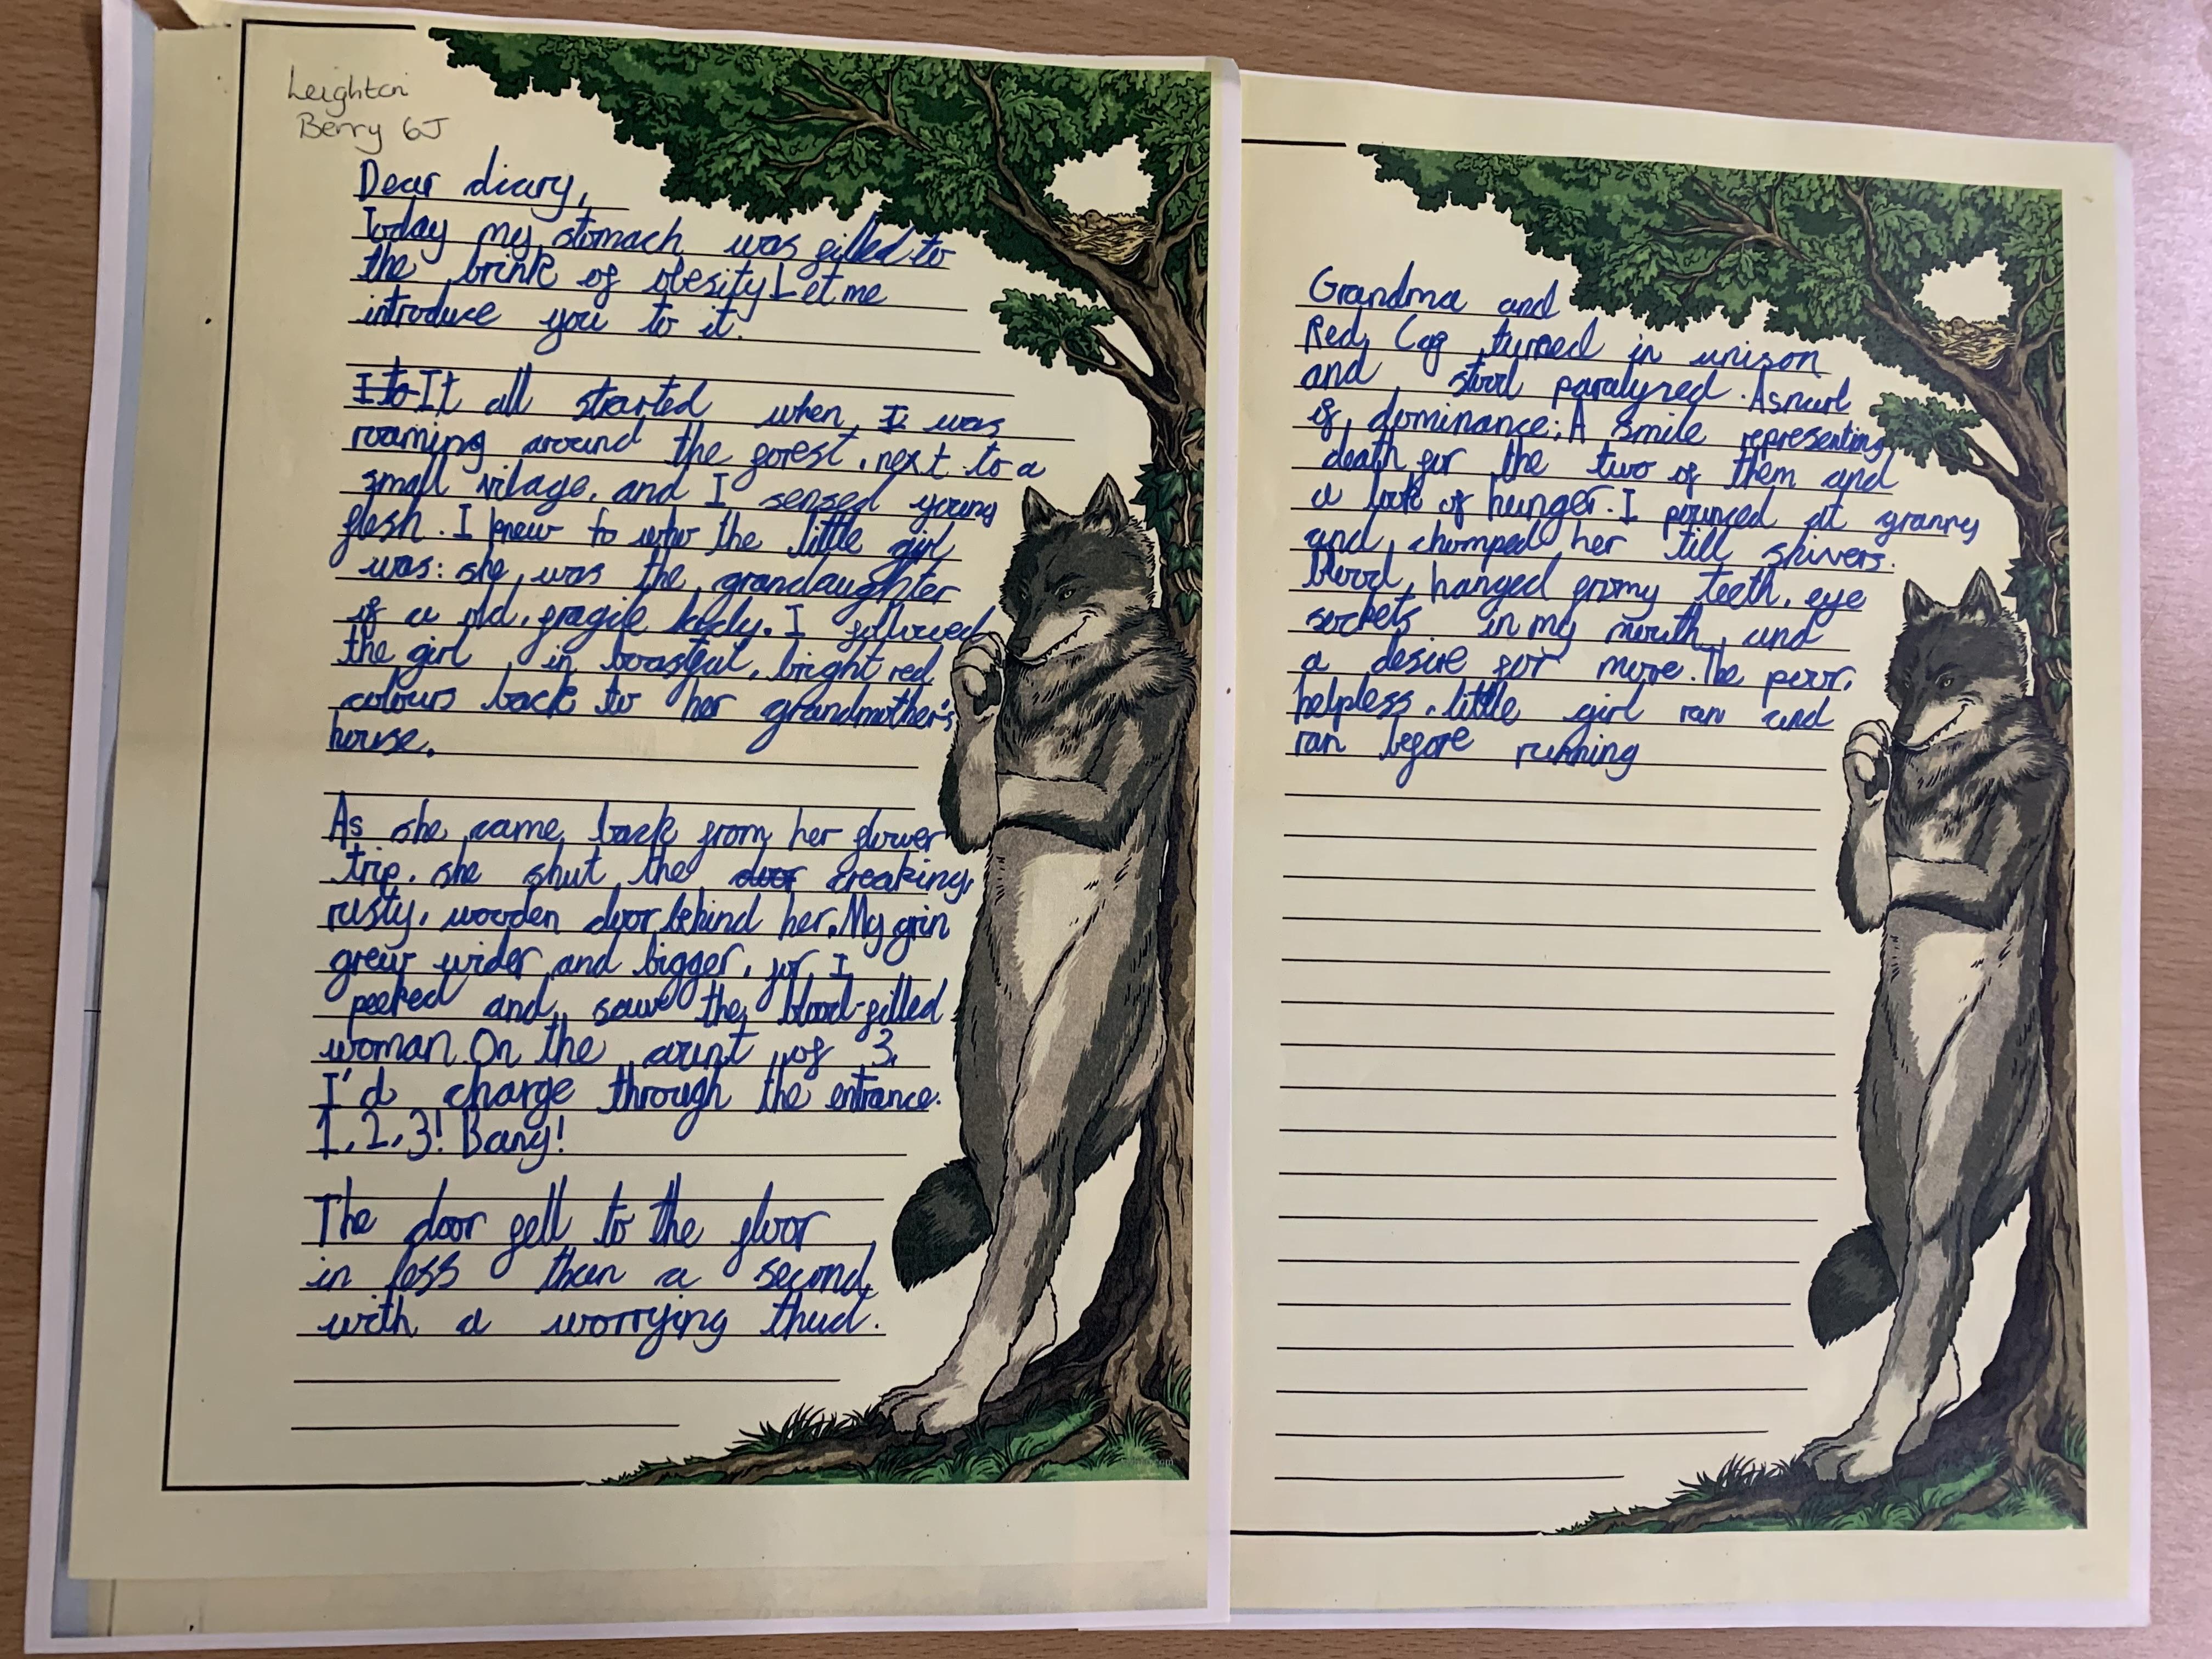 Leighton
Berry 6J
Dear diary,
Today my stomach was filled to
the brink of obesity Let me
introduce you to it.
I to It all started when I was
roaming around the forest, next to a
small vilage, and I sensed young
flesh. I knew to who the little girl
was: she was the grandaughter
of a old, fragile lady. I followed
the girl in boastful, bright red
colours back to her grandmother's
house.
As she came back from her flower
trip, she shut the door creaking,
rusty, wooden door behind her. My grin
grew wider and bigger, for I
peeked and saw the blood-filled
woman. On the count of 3,
I'd charge through the entrance.
1, 2, 3! Bang!
The door fell to the floor
in less than a second,
with a worrying thud.
Grandma and
Red Cap turned in unison
and stood paralyzed. A snarl
of dominance; A smile representing
death for the two of them and
a look of hunger. I pounced at granny
and chomped her till shivers.
Blood hanged from my teeth, eye
sockets in my mouth, and
a desire for more. The poor,
helpless, little girl ran and
ran before running